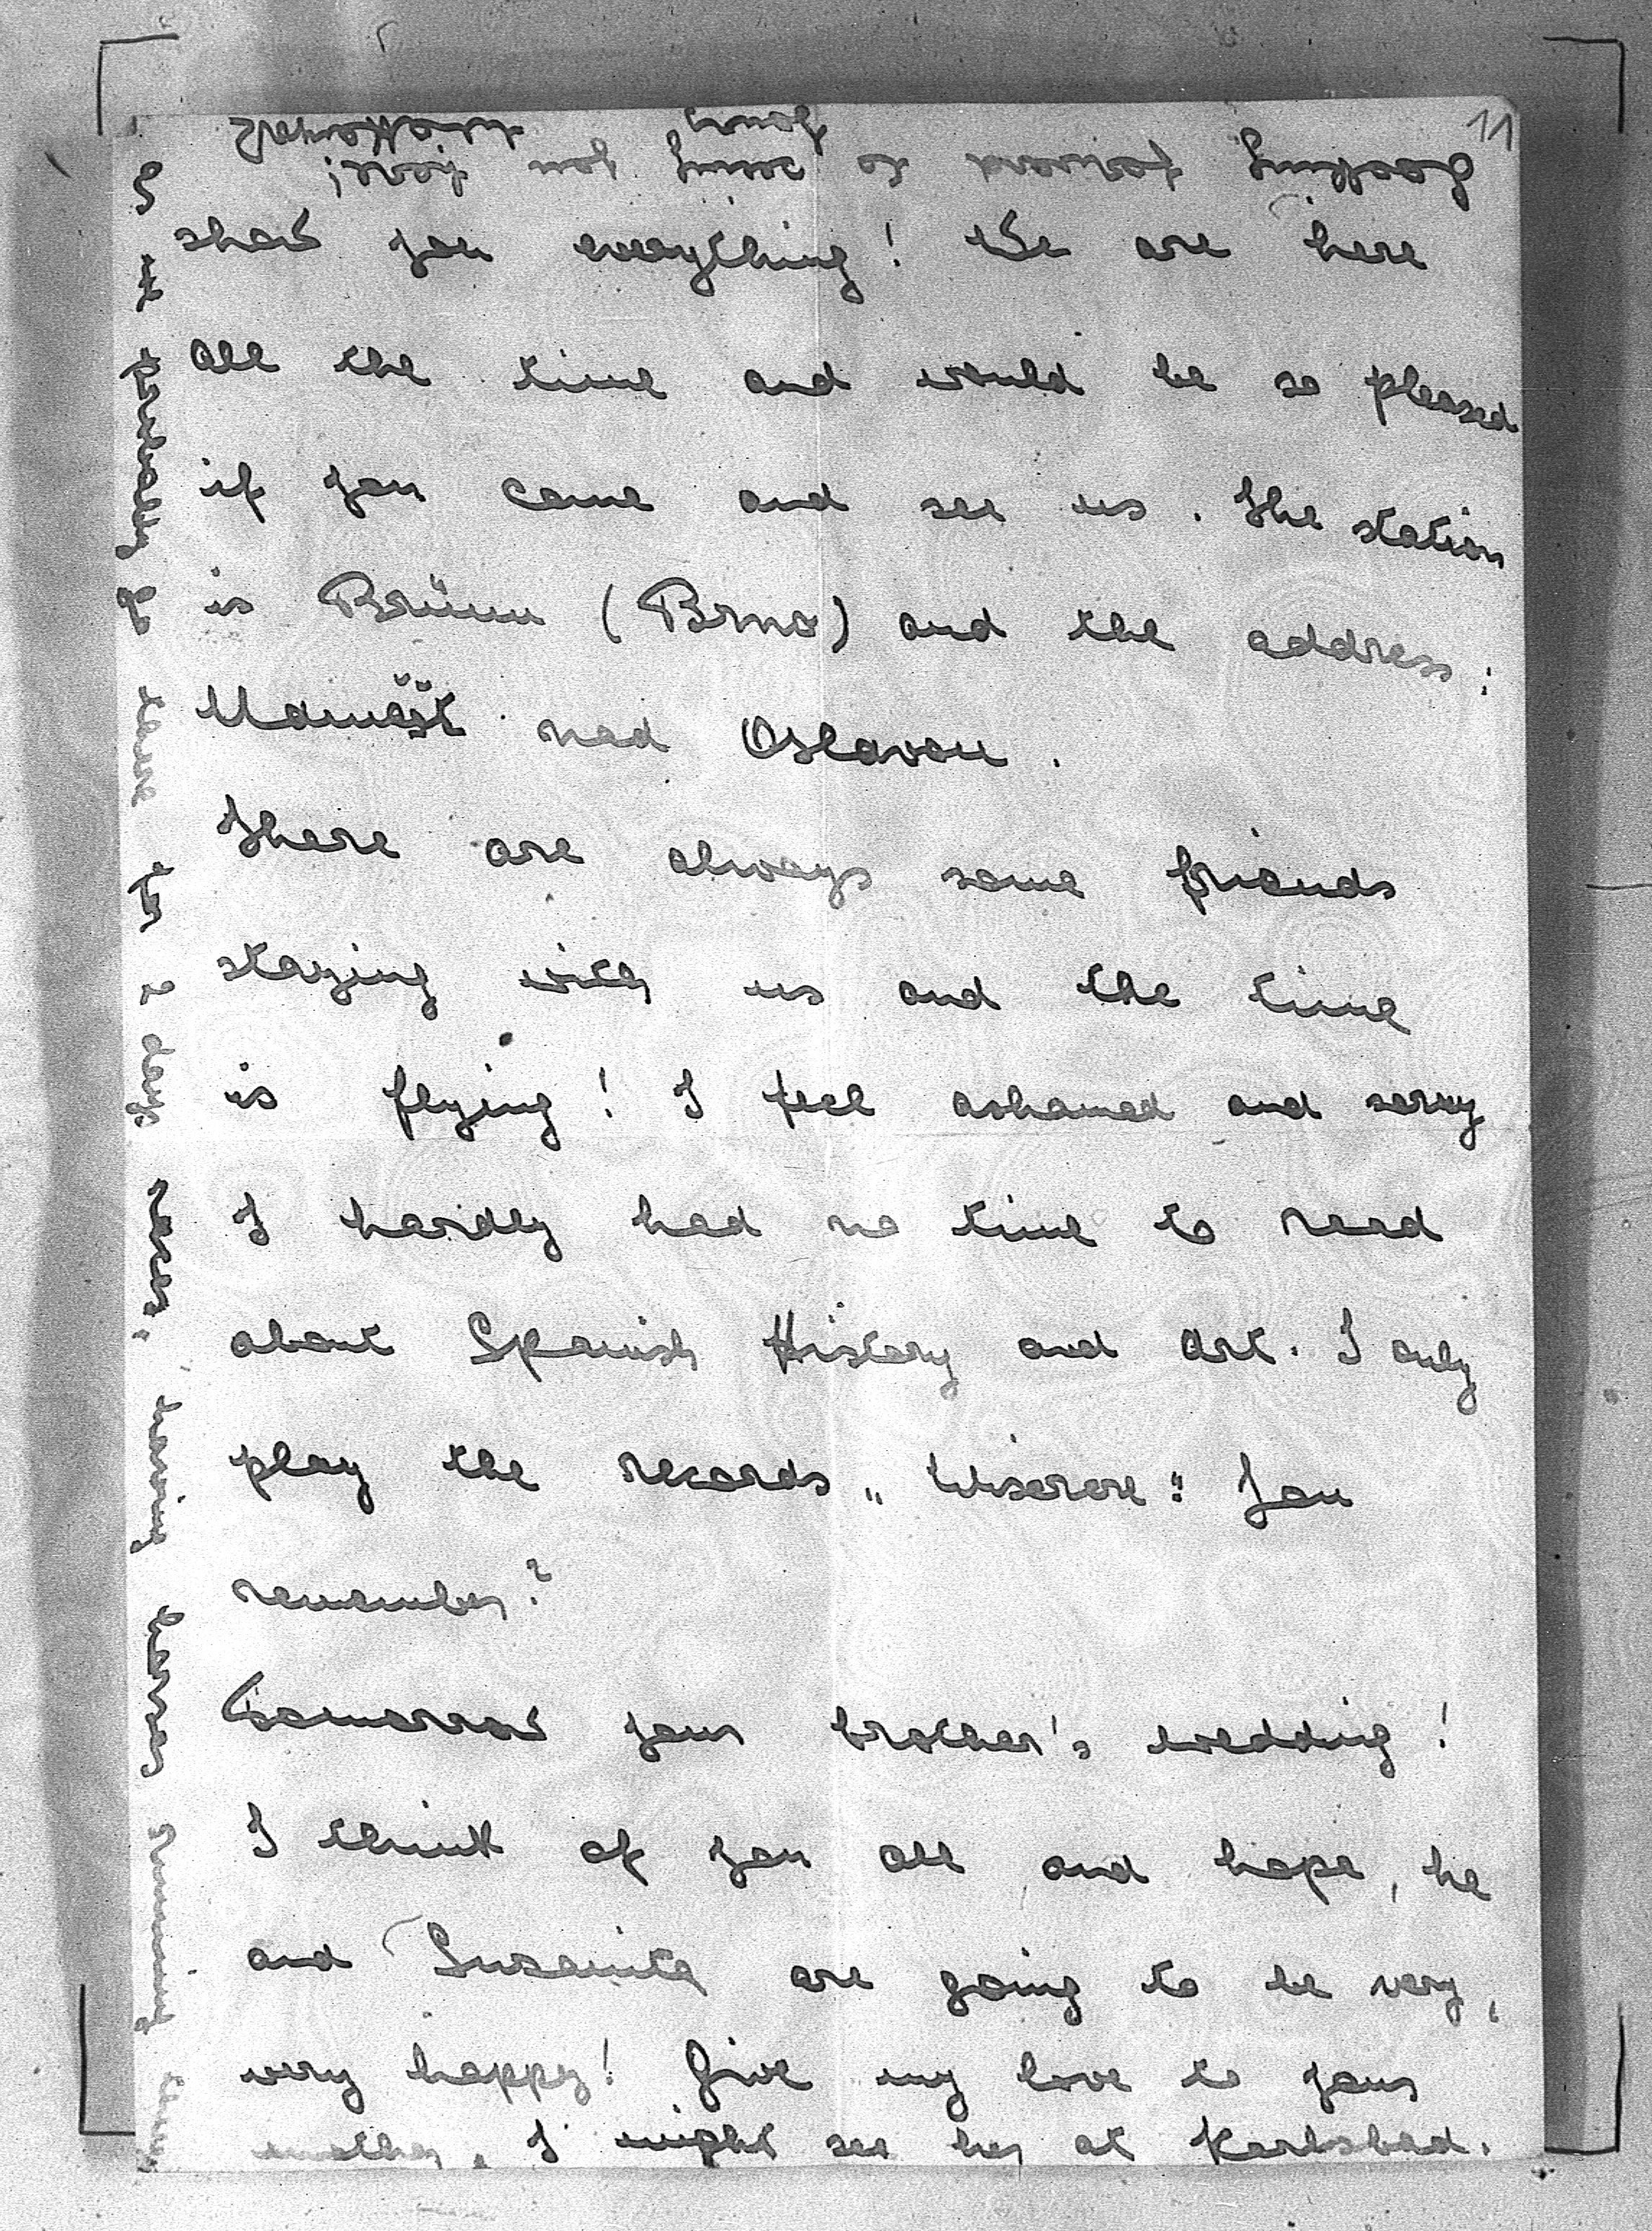 11
show you everything! We are here
all the time and would be so pleased
if you came and see us. The station
is Brünn (Brno) and the address:
Naměšť nad Oslavou.
There are always some friends
staying with us and the time
is flying! I feel ashamed and sorry
I hardly had no time to read
about Spanish History and Art. I only
play the records „Miserere" You
remember?
Tomorrow your brother's wedding!
I think of you all and hope, he
and Susanita are going to be very,
very happy! Give my love to your
mother, I might see her at Karlsbad.
I'll probably go there for 2 days races, having horses running there
Looking forward to seeing you here!